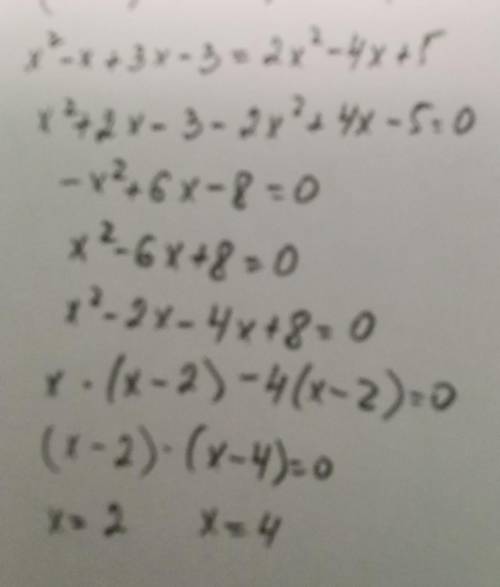 x² - x + 3x - 3 = 2x² - 4x + 5
x² + 2x - 3 - 2x² + 4x - 5 = 0
-x² + 6x - 8 = 0
x² - 6x + 8 = 0
x² - 2x - 4x + 8 = 0
x · (x - 2) - 4(x - 2) = 0
(x - 2) · (x - 4) = 0
x = 2 x = 4